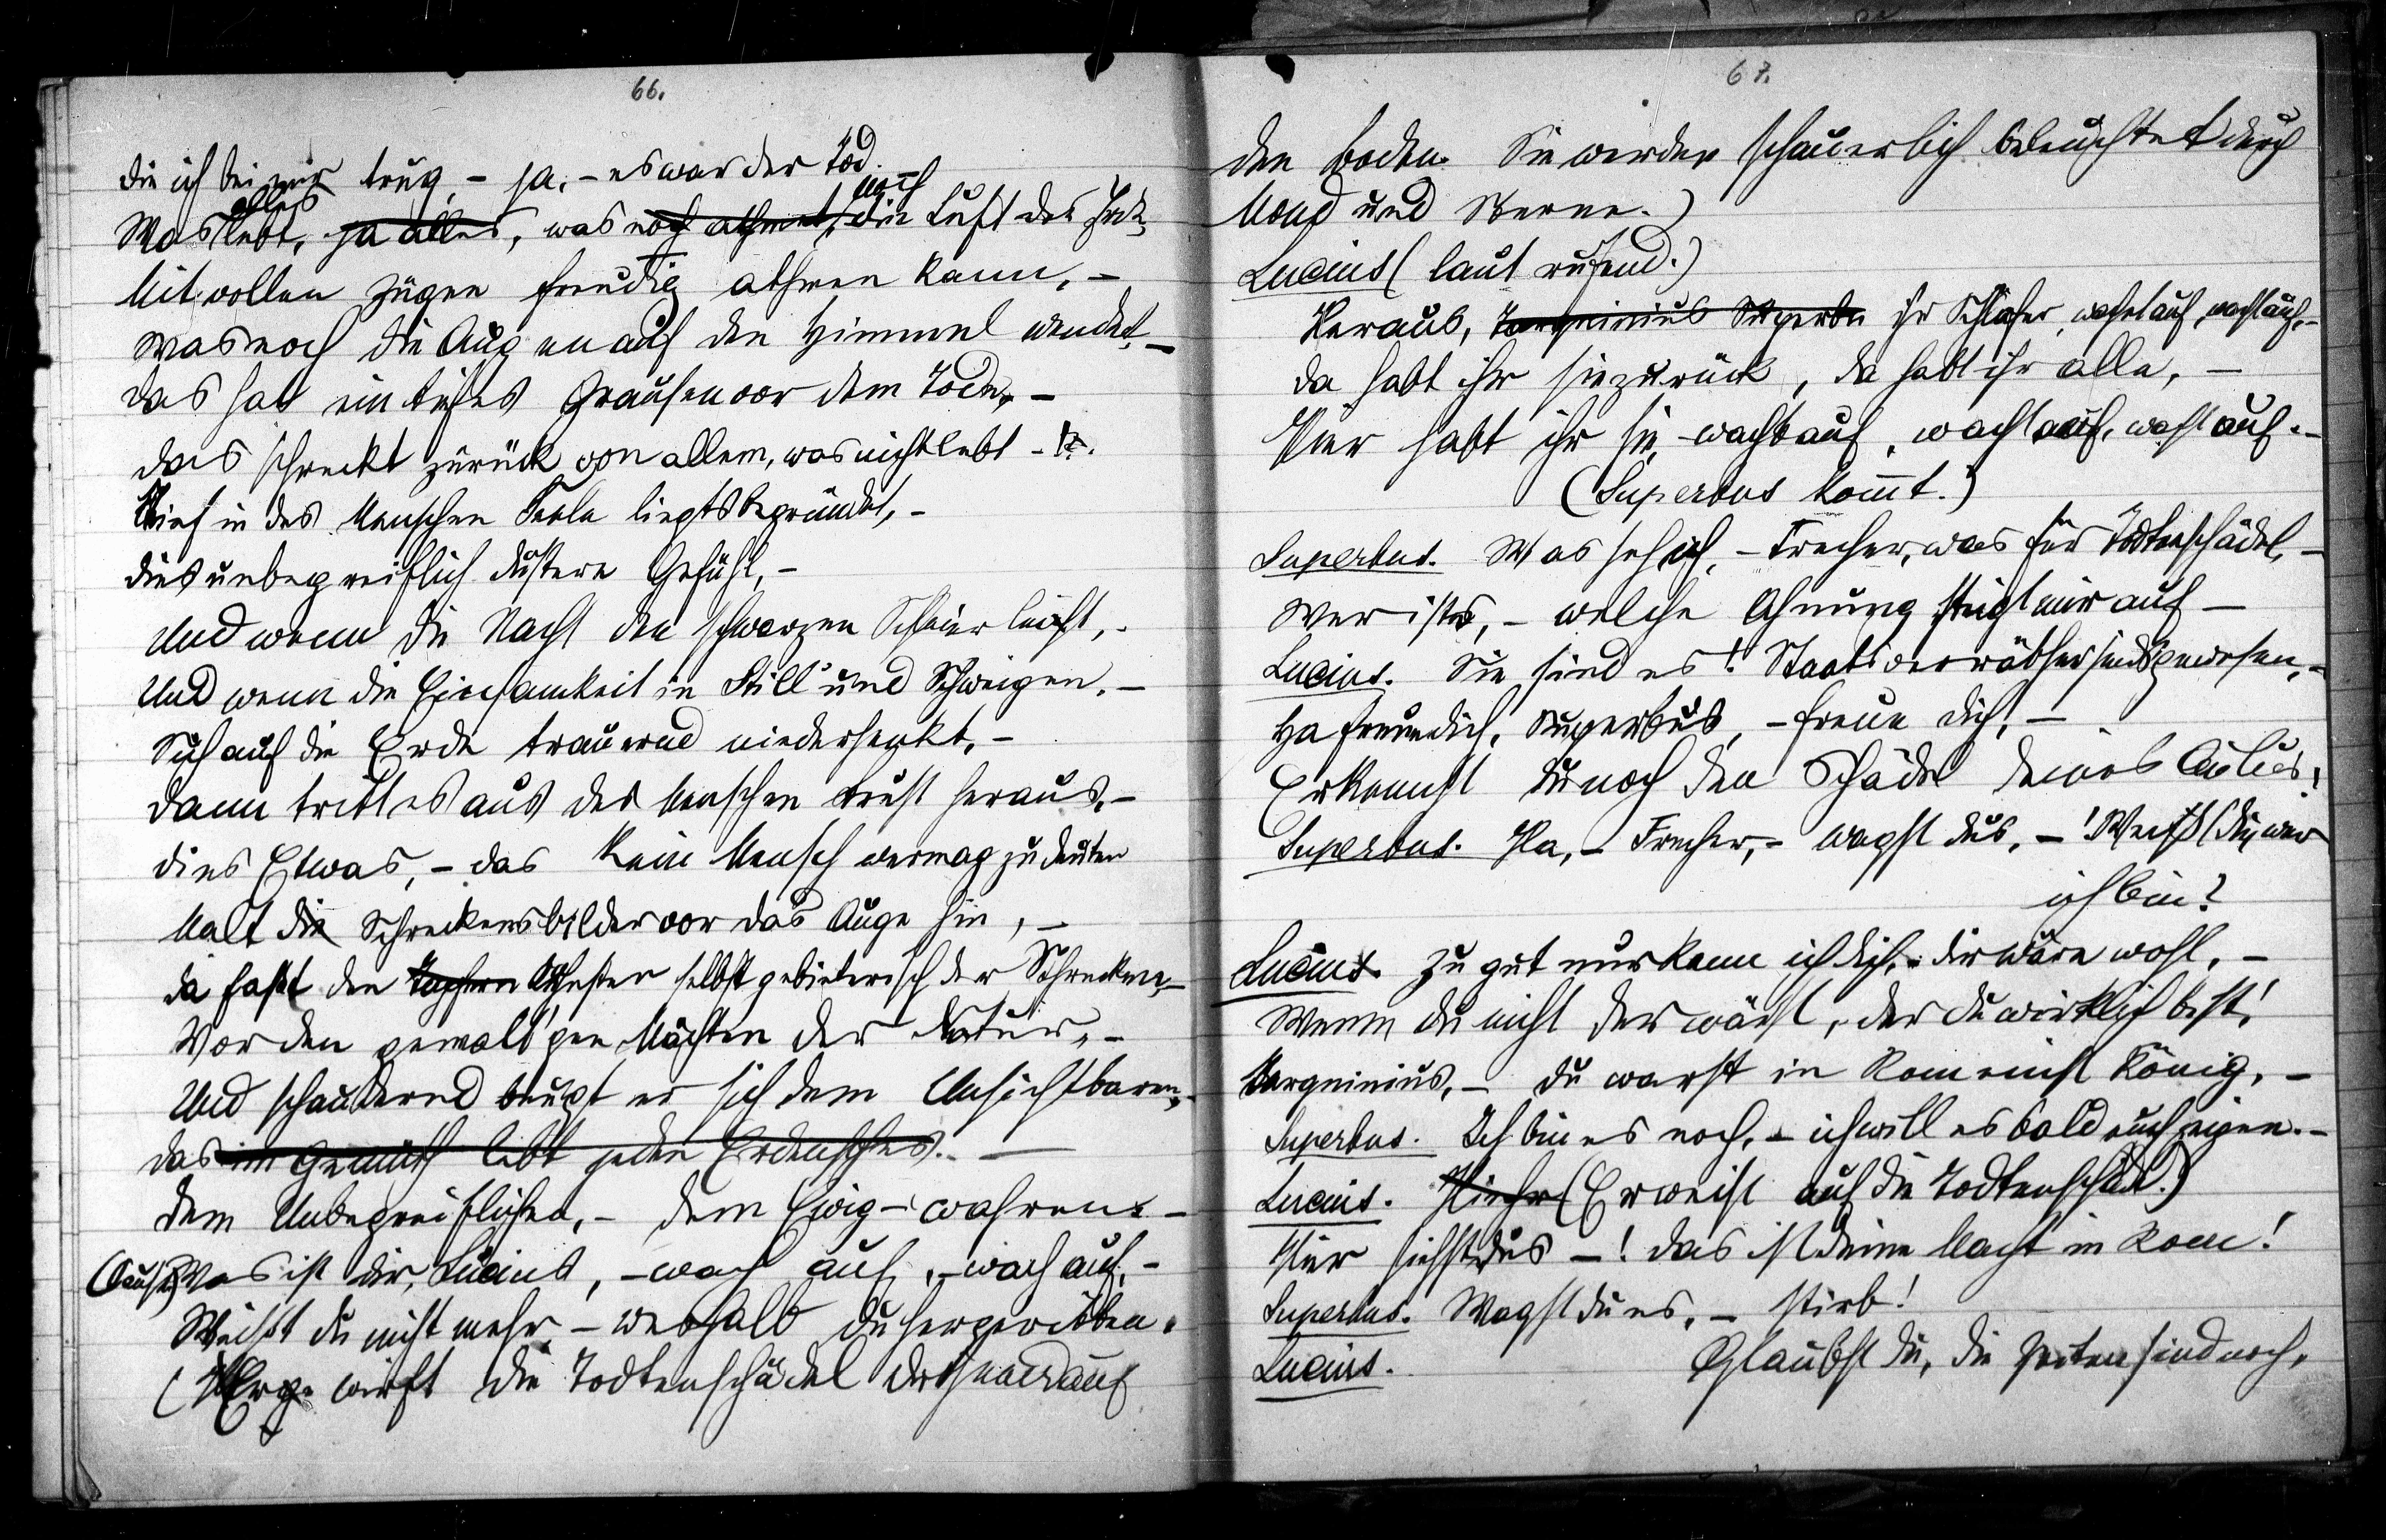 66.
die ich bei mir trug, – ja, – es war der Tod.
Was alles lebt, ja alles, was noch athmet, noch die Luft der
Mit vollen Zügen freudig athmen kann, –
Was noch die Augen auf den Himmel wendet, –
das hat ein tiefes Grausen vor dem Tode, –
das schreckt zurück von allem, was nicht lebt –
Tief in des Menschen Seele liegts begründet, –
dies unbegreiflich düstere Gefühl, –
Und wenn die Nacht den schwarzen Schleier
Und wenn die Einsamkeit in Still' und Schweigen, –
Sich auf die Erde trauernd niedersenkt, –
dann tritt es aus des Menschen Brust heraus, –
dies Etwas, – das kein Mensch vermag zu deuten
Malt die Schreckensbilder vor das Auge hin, –
da faßt den Tapfern selbst gebieterisch der Schrecken, –
Vor den gewalt'gen Mächten der Natur, –
Und schaudernd beugt er sich dem Unsichtbaren, –
das im Gemüth lebt jeden Erdensohnes. –
dem Unbegreiflichen, – dem Ewig-wahren. –
Was ist dir, Lucius, – wach auf, – wach auf, –
Weißt du nicht mehr, – weshalb du hergeritten.
(Er wirft die Todtenschädel auf
67.
den Boden. Sie werden schauerlich beleuchtet durch
Mond und Sterne.)
Lucius (laut rufend.)
Heraus, Tarquinius Superbus ihr Schläfer, wacht auf, wacht auf, –
da habt ihr sie zurück, da habt ihr alle, –
Hier habt ihr sie, – wacht auf, wacht auf, wacht auf. –
(Superbus kom̄t.)
Superbus. Was seh ich, – Frecher, was für Todtenschädel, –
Wer ists, – welche Ahnung steigt mir auf –
Lucius. Sie sind es! Staatsverräther sinds gewesen, –
Ha freue dich, Superbus, – freue dich, –
Erkennst du noch den Schädel deines Aulus!
Superbus. Ha, – Frecher, – wagst dus, – ! Weißt du, wer
ich bin?
Lucius. Zu gut nur kenn ich dich, – dir wäre wohl, –
Wenn du nicht der wärst, der du wirklich bist!
Tarquinius, – du warst in Rom einst König, –
Superbus. Ich bin es noch, – ich will es bald euch zeigen. –
Lucius. (Er weist auf die Todtenschädel.)
Hier siehst dus – ! das ist deine Macht in Rom!
Superbus. Wagst du es, – stirb!
Lucius. Glaubst du, die Zeiten sind noch,